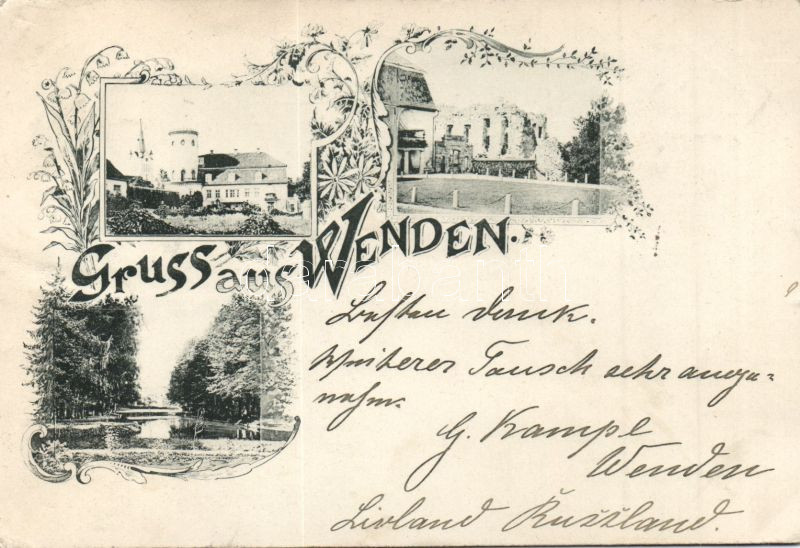 Gruss aus Wenden.
Besten Dank.
Weiterer Tausch sehr ange-
nehm.
G. Kampe
Wenden
Livland Rußland.